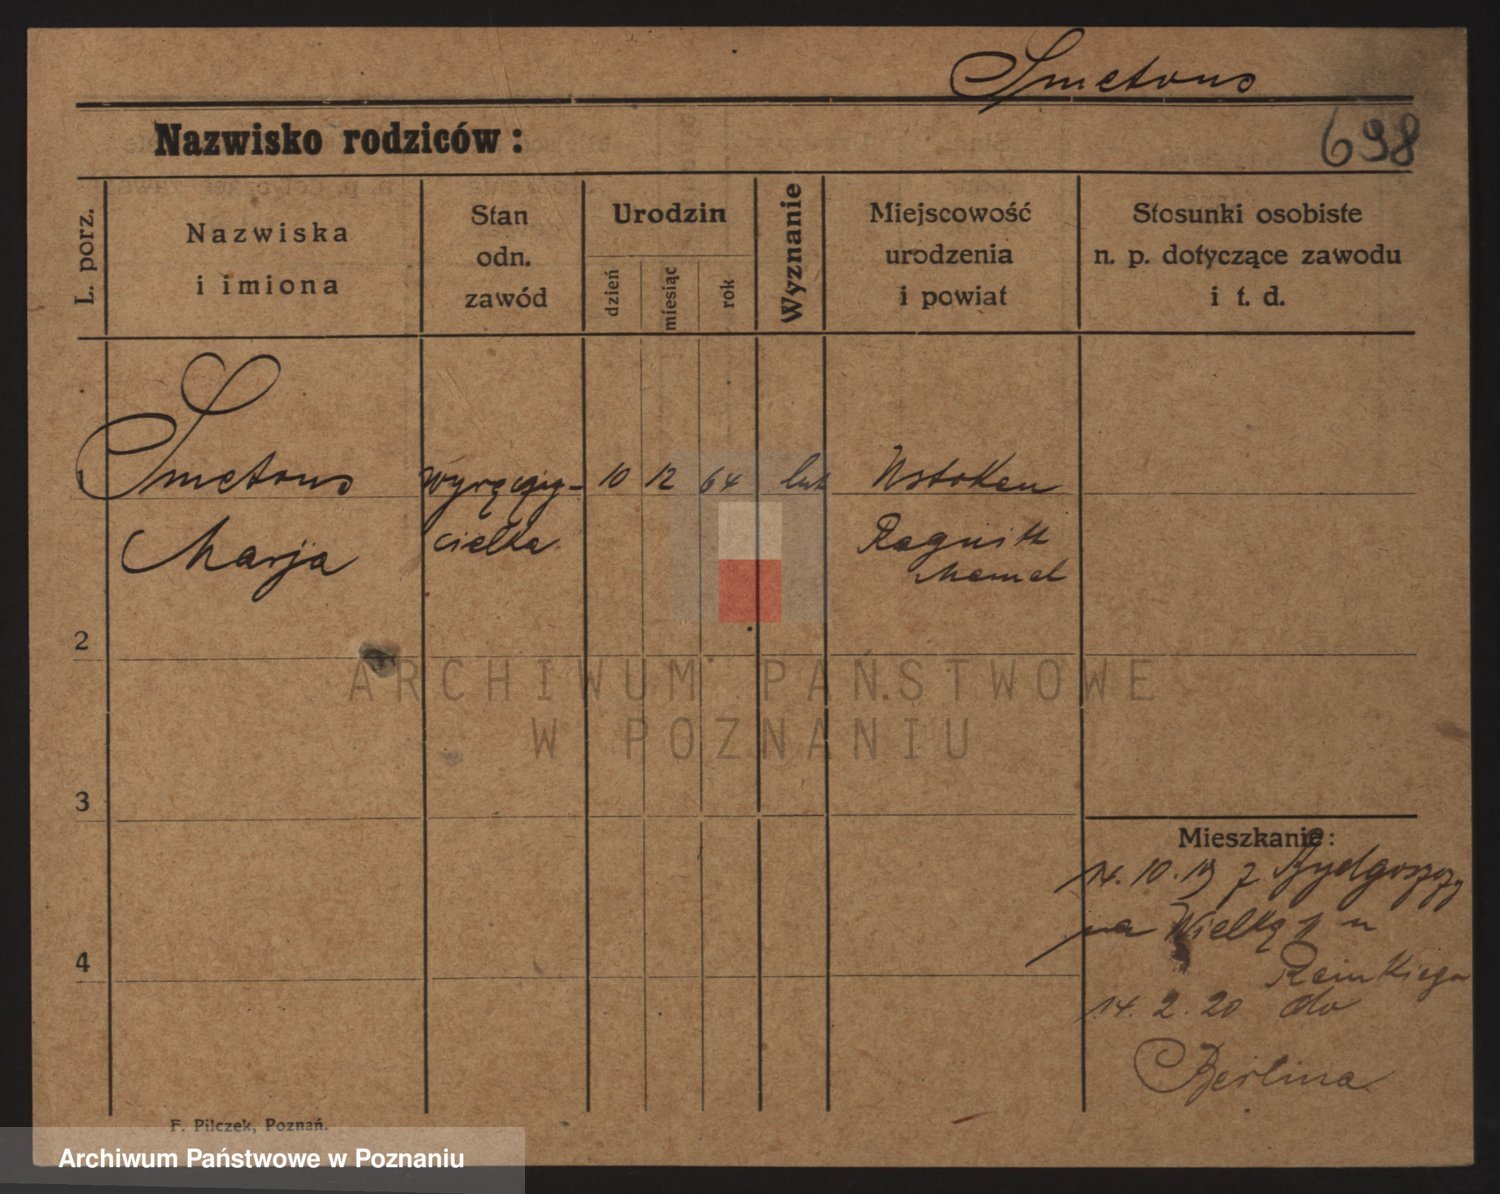 Smetons
698
Nazwisko rodziców:
L. porz.
Nazwiska
i imiona
Stan
odn.
zawód
Urodzin
dzień
miesiąc
rok
Wyznanie
Miejscowość
urodzenia
i powiat
Stosunki osobiste
n. p. dotyczące zawodu
i t. d.
1 Smetons 10 12 64 lut
Marja
cielka
Ragnit
Memel
2
ARCHIWUM PAŃSTWOWE
W POZNANIU
3
Mieszkanie:
14. 10. 19 z Bydgoszczy
na Wielką u
4
14. 2. 20 do
Berlina
F. Pilczek, Poznań.
Archiwum Państwowe w Poznaniu